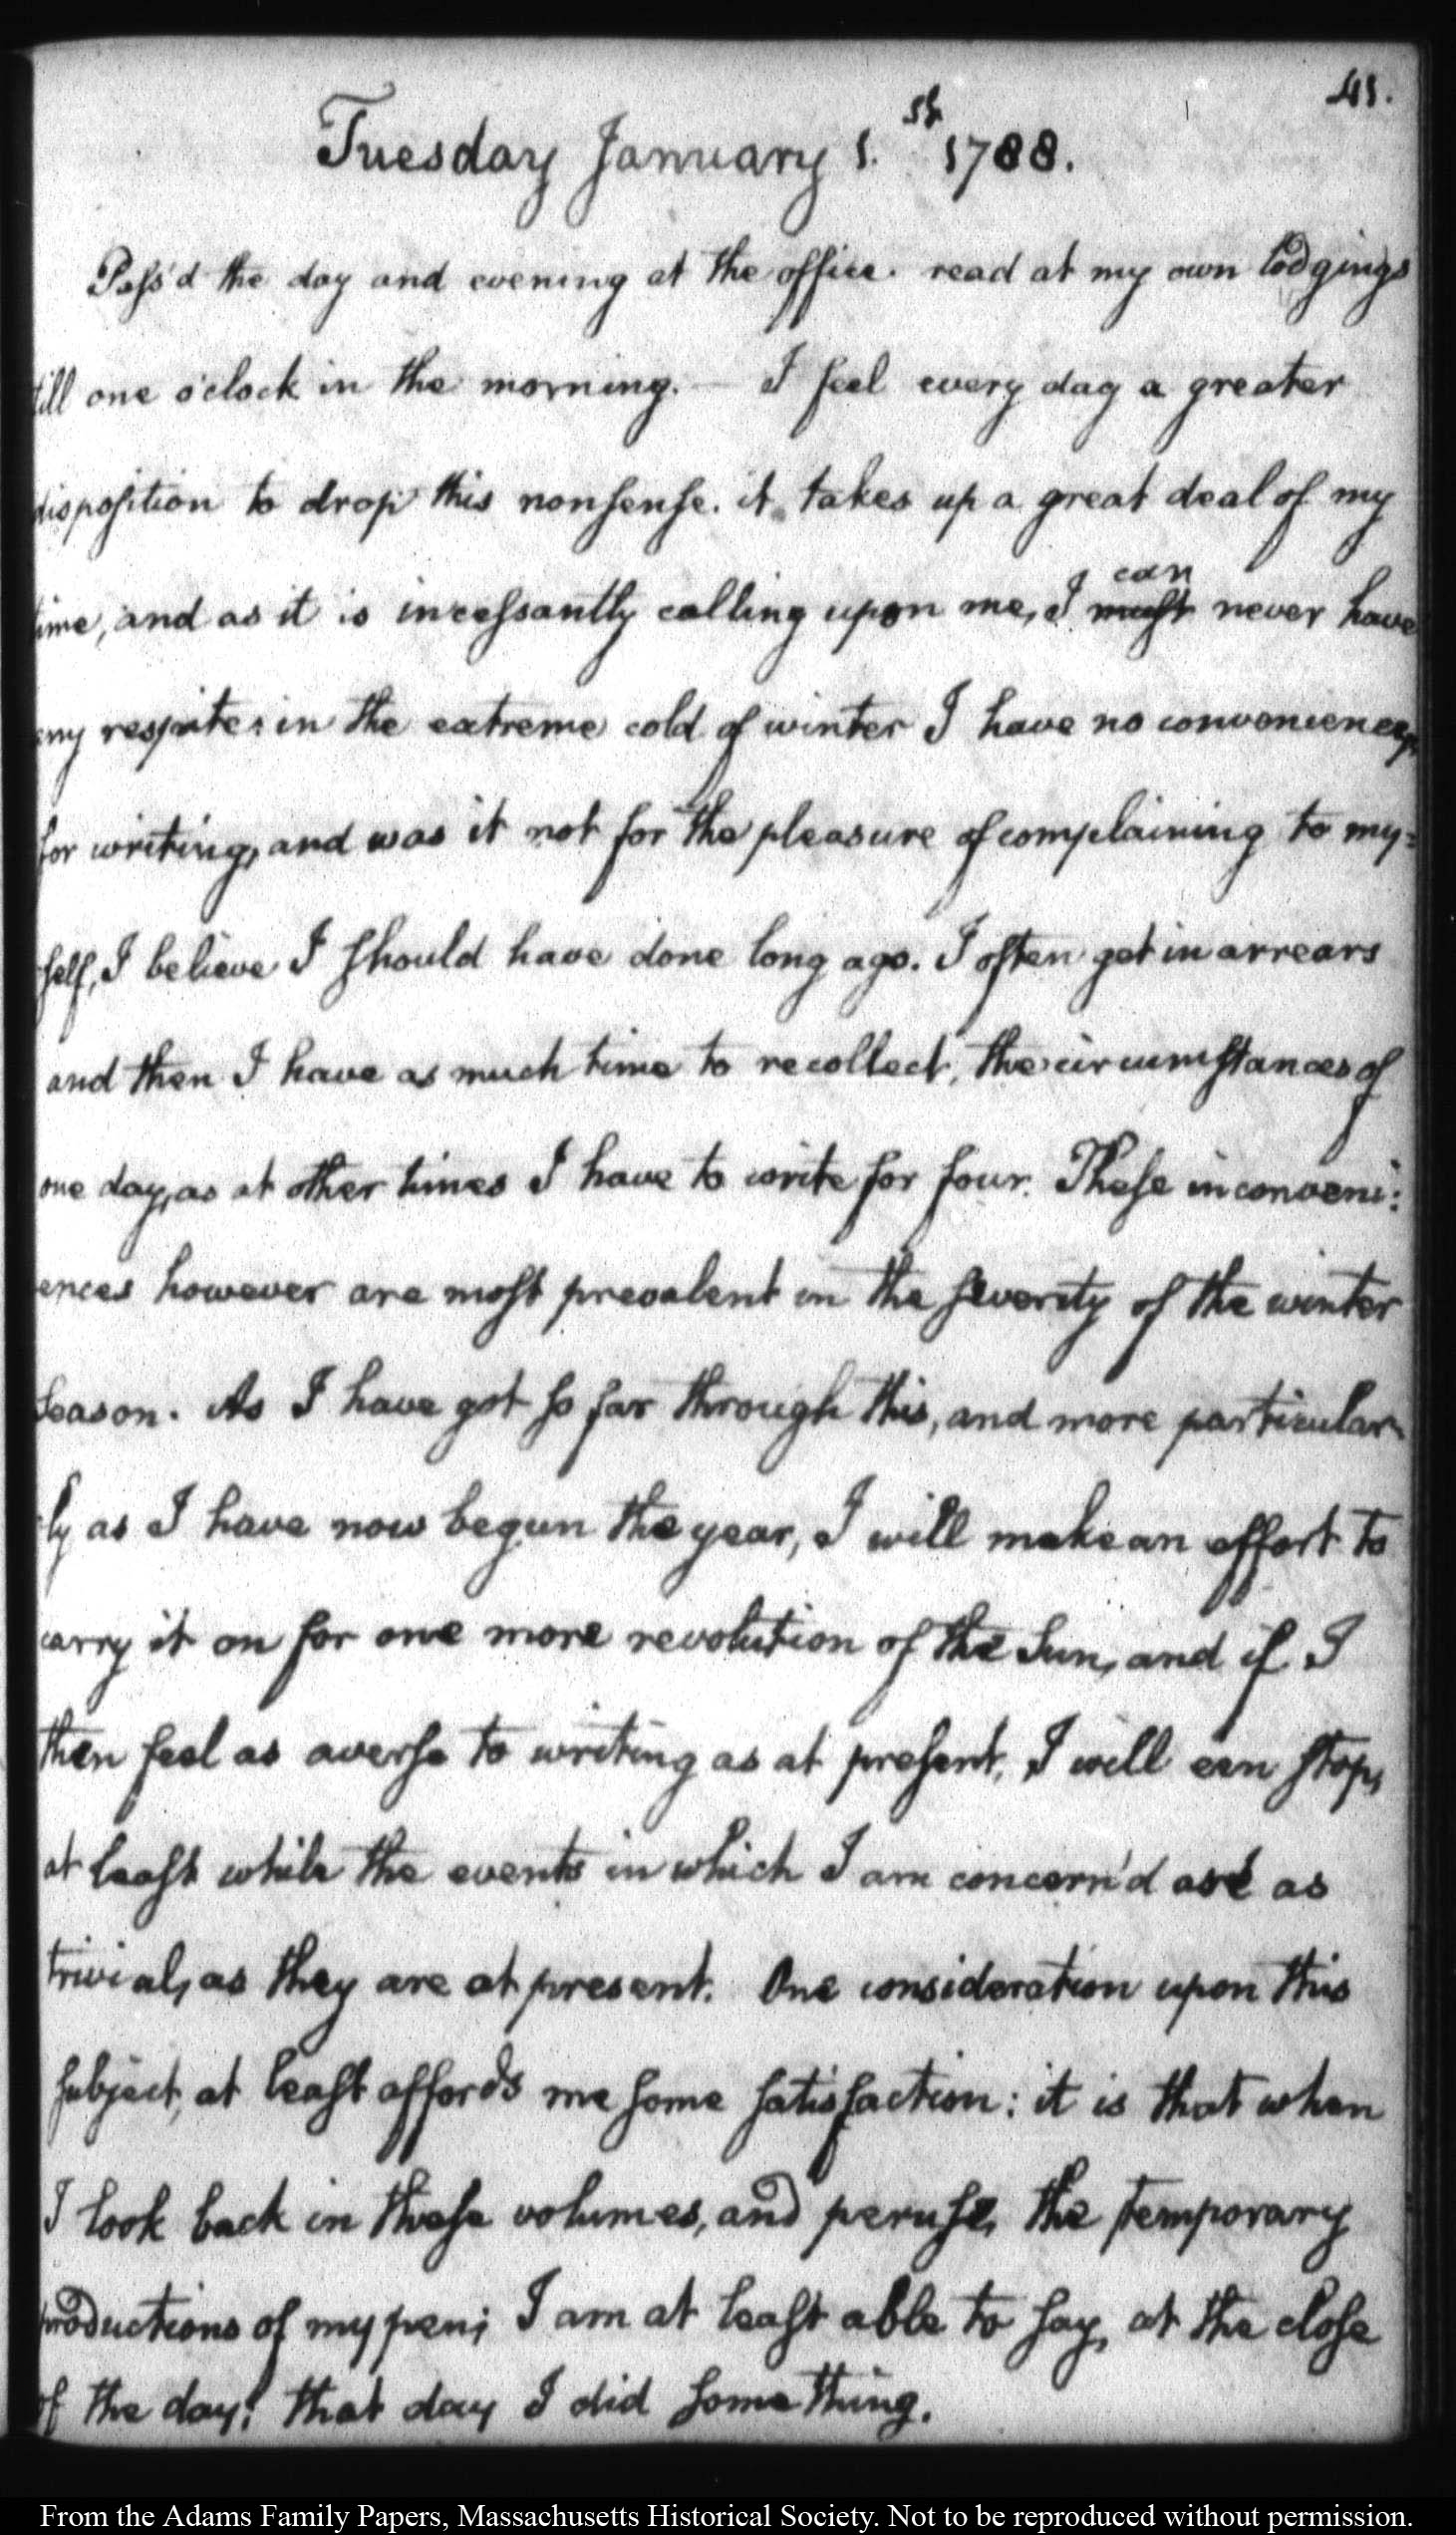 41.
Tuesday January 1.st 1788.
Pass'd the day and evening at the office. read at my own lodgings
till one o'clock in the morning. — I feel every day a greater
disposition to drop this nonsense. it takes up a great deal of my
time, and as it is incessantly calling upon me, I must can never have
any respite: in the extreme cold of winter I have no conveniency
for writing, and was it not for the pleasure of complaining to my=
self, I believe I should have done long ago. I often get in arrears
and then I have as much time to recollect, the circumstances of
one day, as at other times I have to write for four. These inconveni:
ences however are most prevalent in the severity of the winter
season. As I have got so far through this, and more particular
:ly as I have now begun the year, I will make an effort to
carry it on for one more revolution of the Sun, and if I
then feel as averse to writing as at present, I will een stop,
at least while the events in which I am concern'd are as
trivial, as they are at present. One consideration upon this
subject, at least affords me some satisfaction: it is that when
I look back in these volumes, and peruse, the temporary
productions of my pen; I am at least able to say, at the close
of the day! that day I did something.
From the Adams Family Papers, Massachusetts Historical Society. Not to be reproduced without permission.